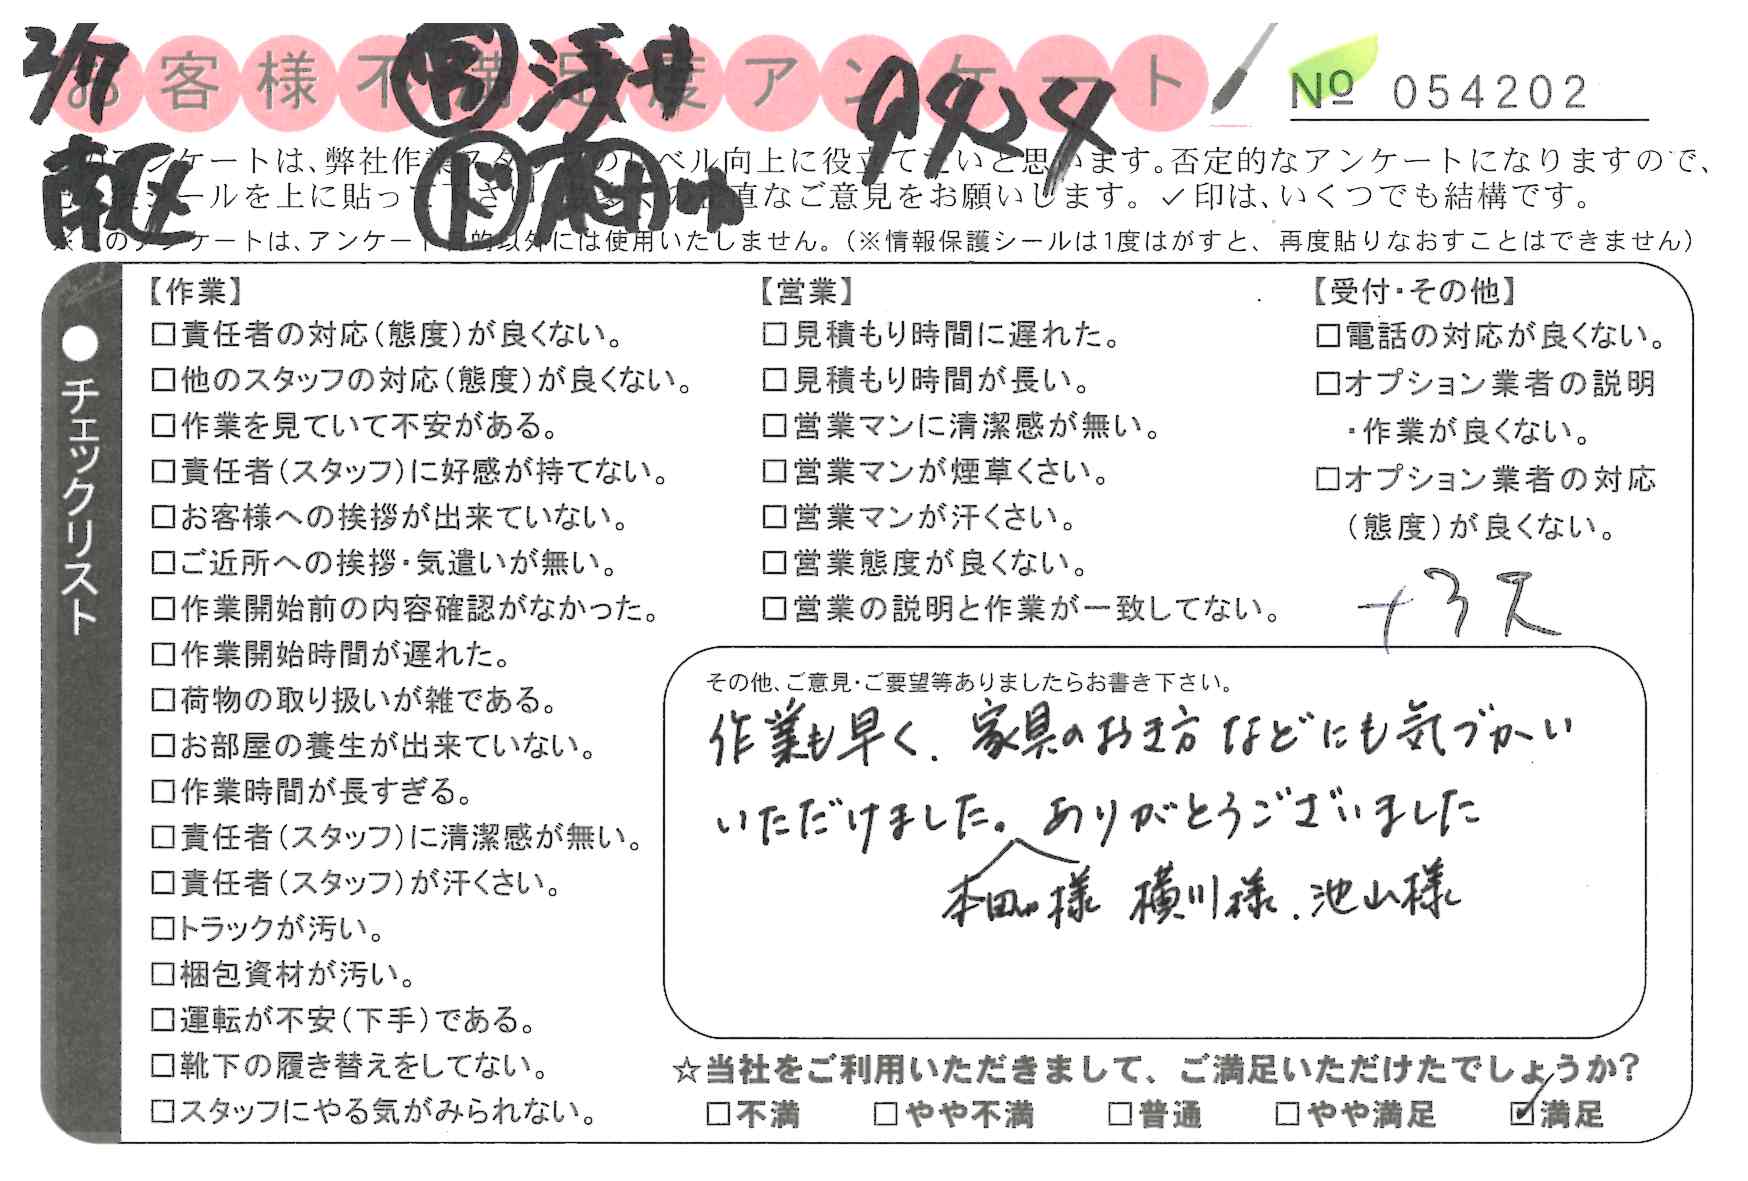 2/7
お客様不満足度アンケート
9424
№ 054202
南区
このアンケートは、弊社作業スタッフのレベル向上に役立てたいと思います。否定的なアンケートになりますので、
シールを上に貼って下さい 直なご意見をお願いします。✓印は、いくつでも結構です。
※このアンケートは、アンケート目的以外には使用いたしません。（※情報保護シールは1度はがすと、再度貼りなおすことはできません）
●チェックリスト
【作業】
□責任者の対応（態度）が良くない。
□他のスタッフの対応（態度）が良くない。
□作業を見ていて不安がある。
□責任者（スタッフ）に好感が持てない。
□お客様への挨拶が出来ていない。
□ご近所への挨拶・気遣いが無い。
□作業開始前の内容確認がなかった。
□作業開始時間が遅れた。
□荷物の取り扱いが雑である。
□お部屋の養生が出来ていない。
□作業時間が長すぎる。
□責任者（スタッフ）に清潔感が無い。
□責任者（スタッフ）が汗くさい。
□トラックが汚い。
□梱包資材が汚い。
□運転が不安（下手）である。
□靴下の履き替えをしてない。
□スタッフにやる気がみられない。
【営業】
□見積もり時間に遅れた。
□見積もり時間が長い。
□営業マンに清潔感が無い。
□営業マンが煙草くさい。
□営業マンが汗くさい。
□営業態度が良くない。
□営業の説明と作業が一致してない。
【受付・その他】
□電話の対応が良くない。
□オプション業者の説明
・作業が良くない。
□オプション業者の対応
（態度）が良くない。
その他、ご意見・ご要望等ありましたらお書き下さい。
作業も早く、家具のおき方などにも気づかい
いただけました。ありがとうございました
本田様 横川様、池山様
☆当社をご利用いただきまして、ご満足いただけたでしょうか?
□不満 □やや不満 □普通 □やや満足 ☑満足